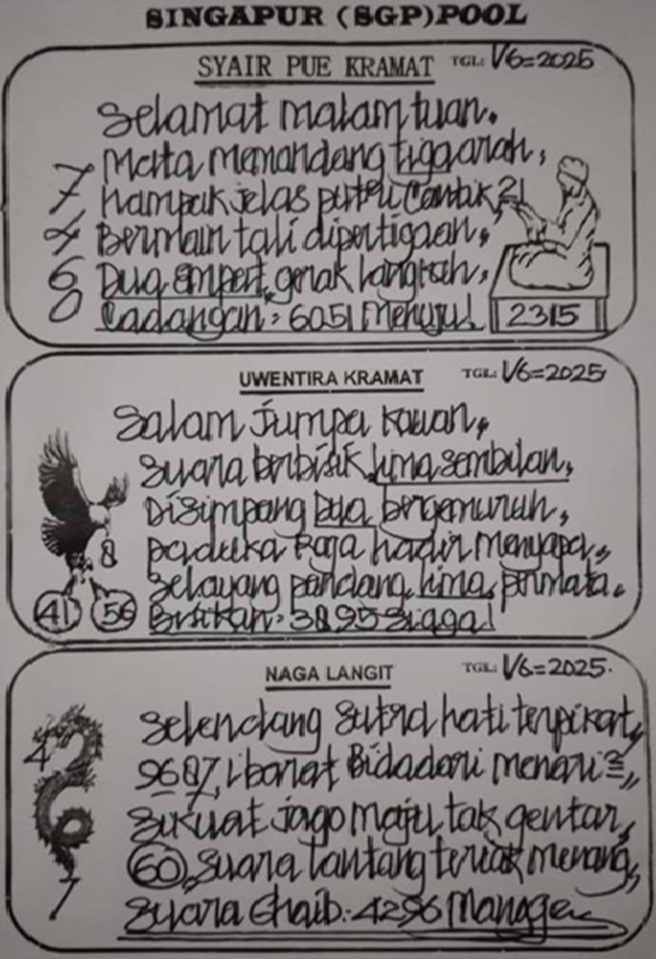 SINGAPUR (SGP)POOL
SYAIR PUE KRAMAT TGL: 1/6=2025
Selamat malam tuan.
Mata memandang tigga arah,
7 Nampak jelas putri Cantik2!
4 Bermain tali dipertigaan,
6 Dua empat, gerak langkah,
0 Cadangan: 6051 Menuju!
2315
UWENTIRA KRAMAT TGL: 1/6=2025
Salam Jumpa kawan,
Suara berbisik lima sembilan,
Disimpang Dua bergemuruh,
8 paduka Raja hadir menyapa,
Selayang pandang, lima, permata.
41 56 Bisikan: 3895 Siaga!
NAGA LANGIT TGL: 1/6=2025.
Selendang Sutra hati terpikat,
4 9687, ibarat Bidadari menari2,,
Sikuat jago maju tak gentar,
60, Suara lantang teriak menang,,
7 Suara Ghaib: 4296